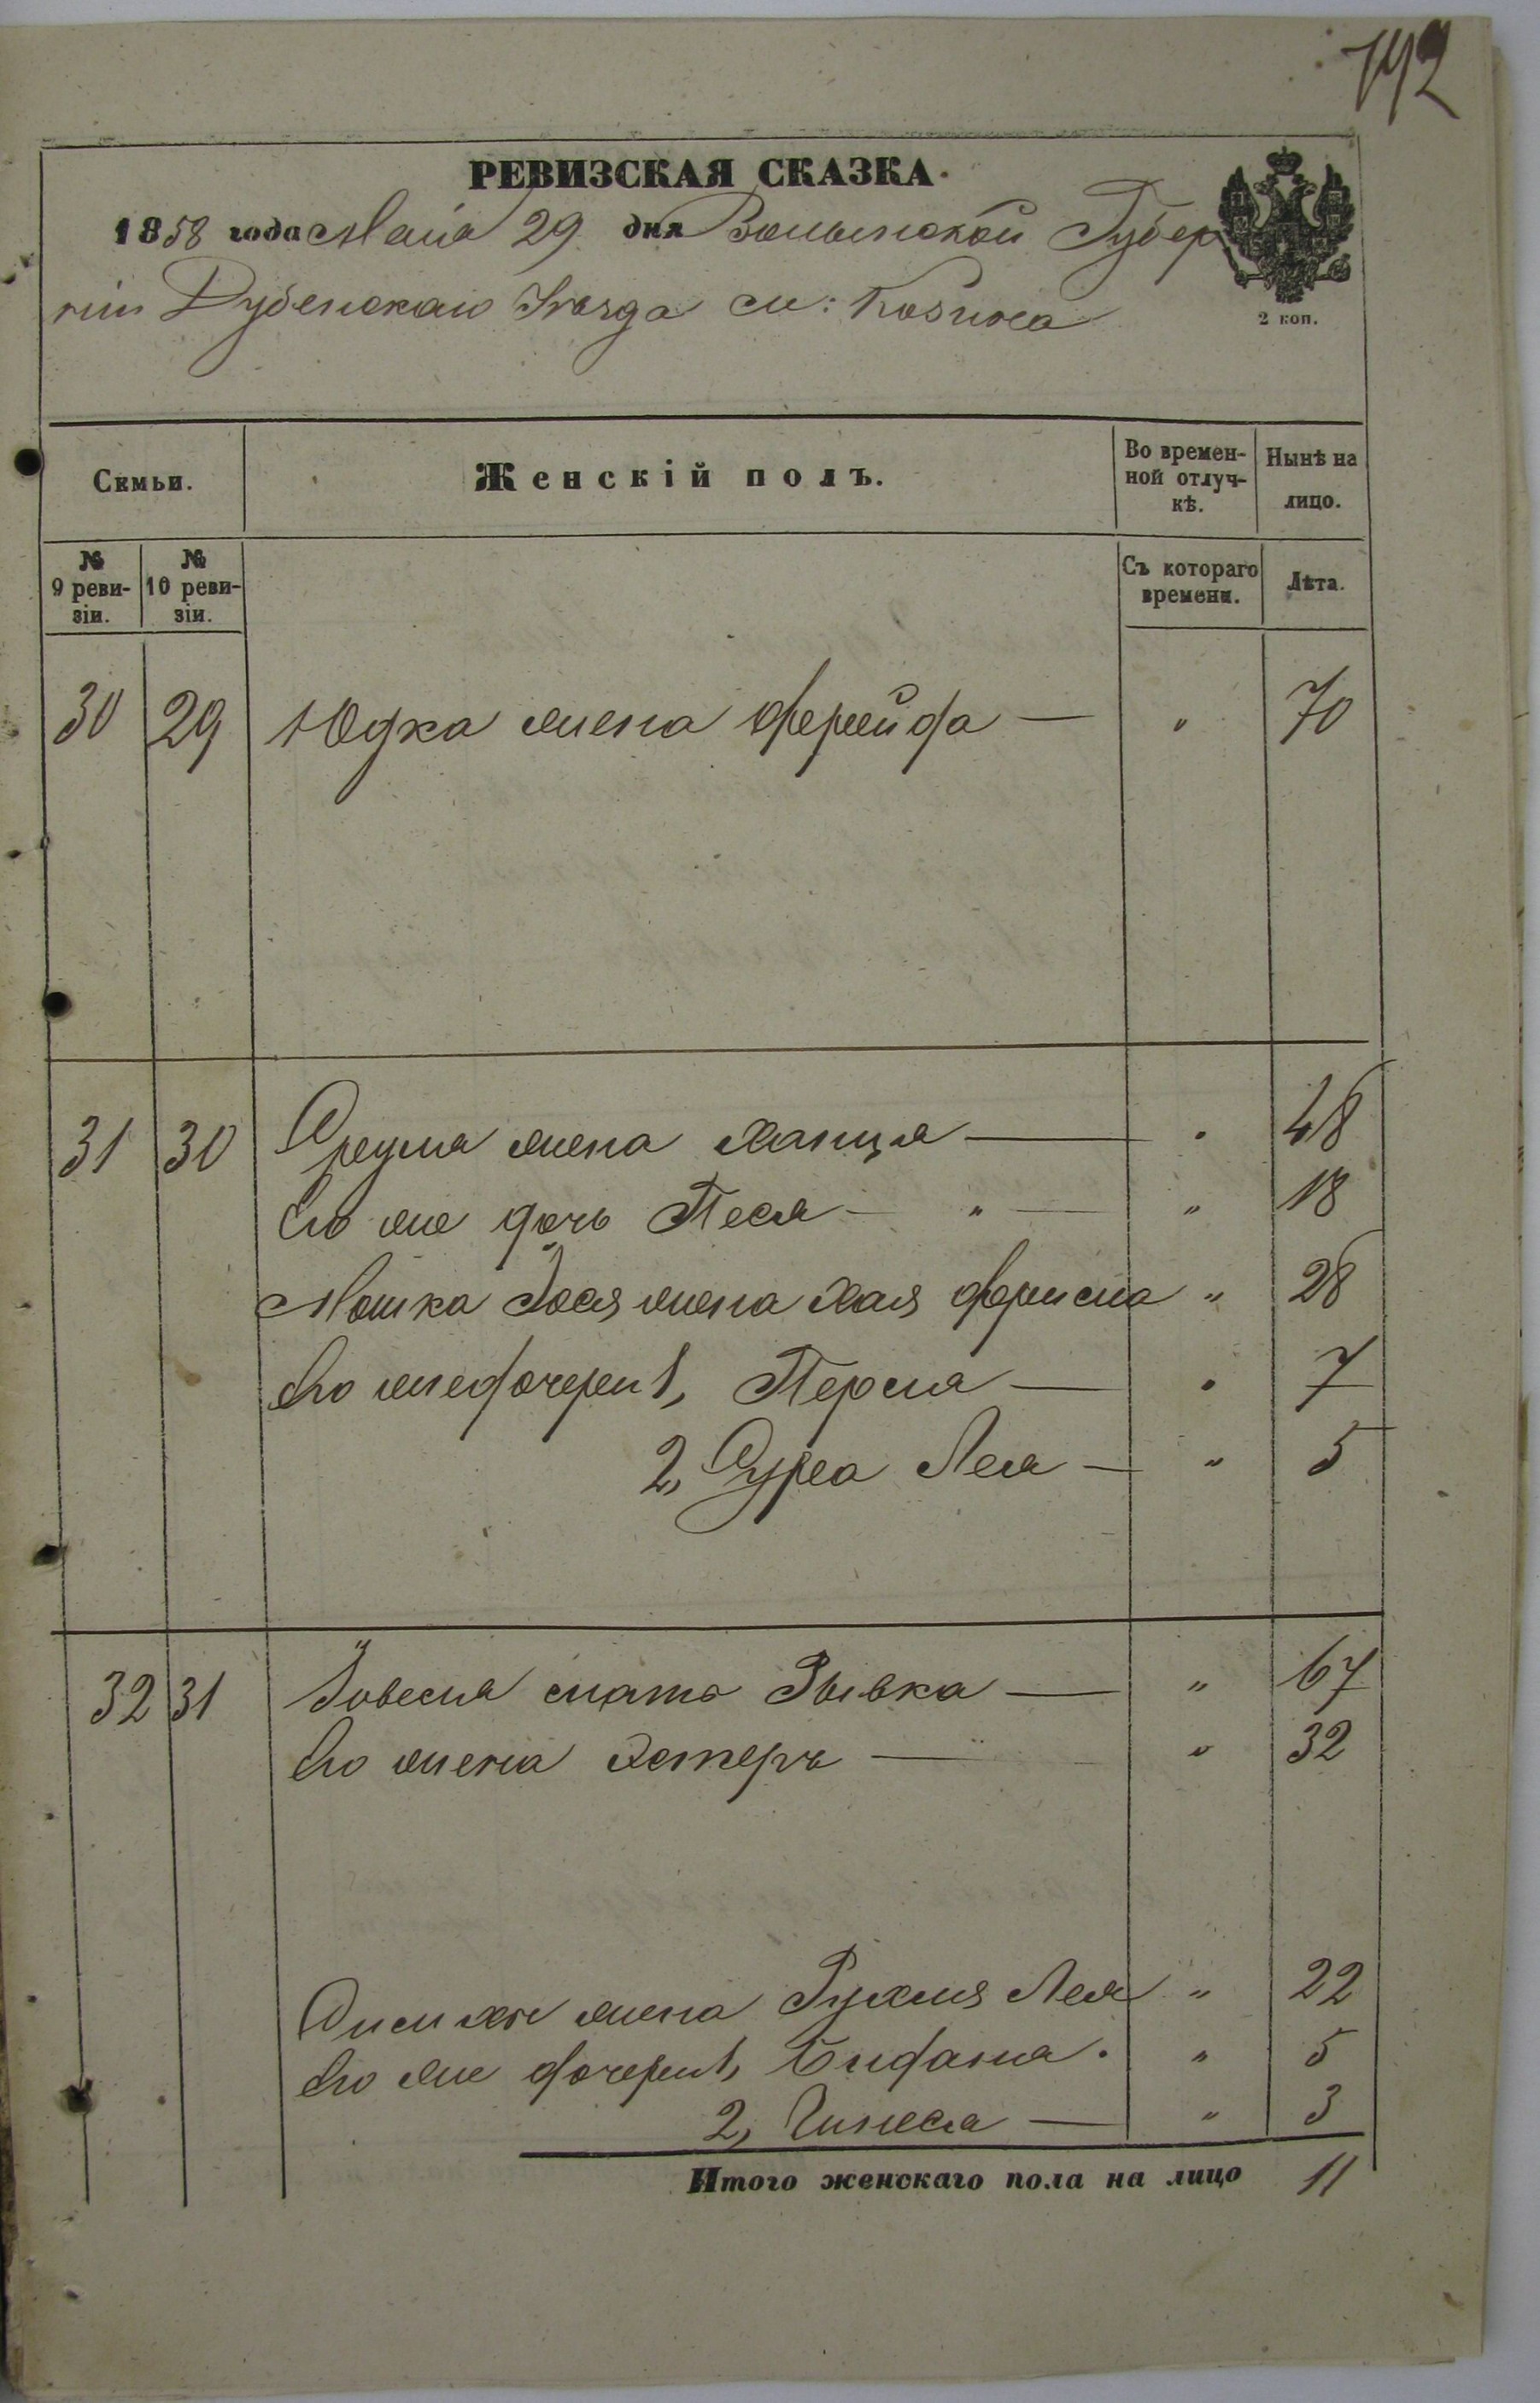 742
РЕВИЗСКАЯ СКАЗКА.
1858 года Маія 29 дня Волынской Губер
ніи Дубенскаго Уѣзда м: Козина
2 коп.
Семьи.
Женскій полъ.
Во времен-
ной отлуч-
кѣ.
Нынѣ на
лицо.
№
9 реви-
зіи.
№
10 реви-
зіи.
Съ котораго
времени.
Лѣта.
30 29 Юдка жена Фрейда — " 70
31 30 жена Ханця — " 48
Его же дочь Песя — " — " 18
Мошка жена Хая " 28
Его же дочери 1, Перля — " 7
2, Сура Лея — " 5
32 31 мать Рывка — " 67
Его жена Эстеръ — " 32
жена Рухля Лея " 22
Его же дочери 1, " 5
2, — " 3
Итого женскаго пола на лицо 11